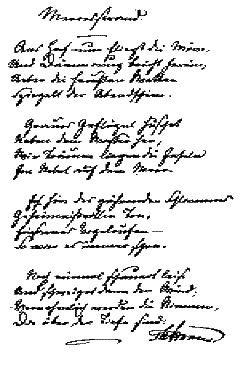 Meeresstrand.
Ans Haf nun fliegt die Möve,
Und Dämmrung bricht herein;
Ueber die feuchten Watten
Spiegelt der Abendschein.
Graues Geflügel huschet
Neben dem Wasser her;
Wie Träume liegen die Inseln
Im Nebel auf dem Meer.
Ich höre des gährenden Schlammes
Geheimnißvollen Ton,
Einsames Vogelrufen —
So war es immer schon.
Noch einmal schauert leise
Und schweiget dann der Wind;
Vernehmlich werden die Stimmen,
Die über der Tiefe sind.
ThStorm